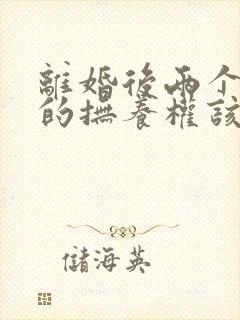 離婚後兩个
的撫養權該
儲海英